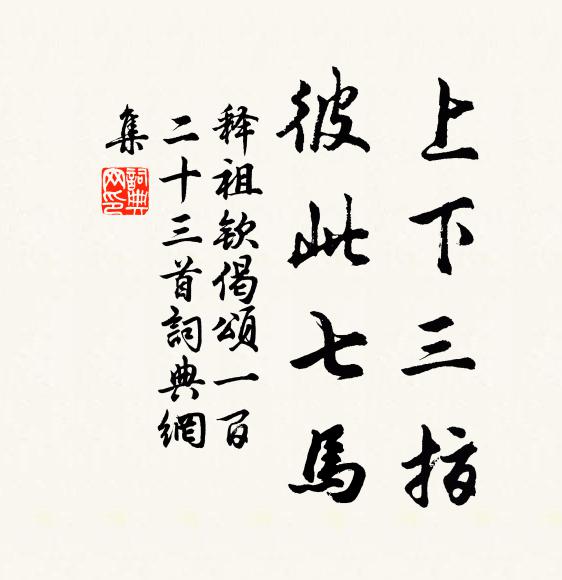 上下三指
彼此七馬
释祖钦偈頌一百
二十三首詞典網
集
詞典
网印